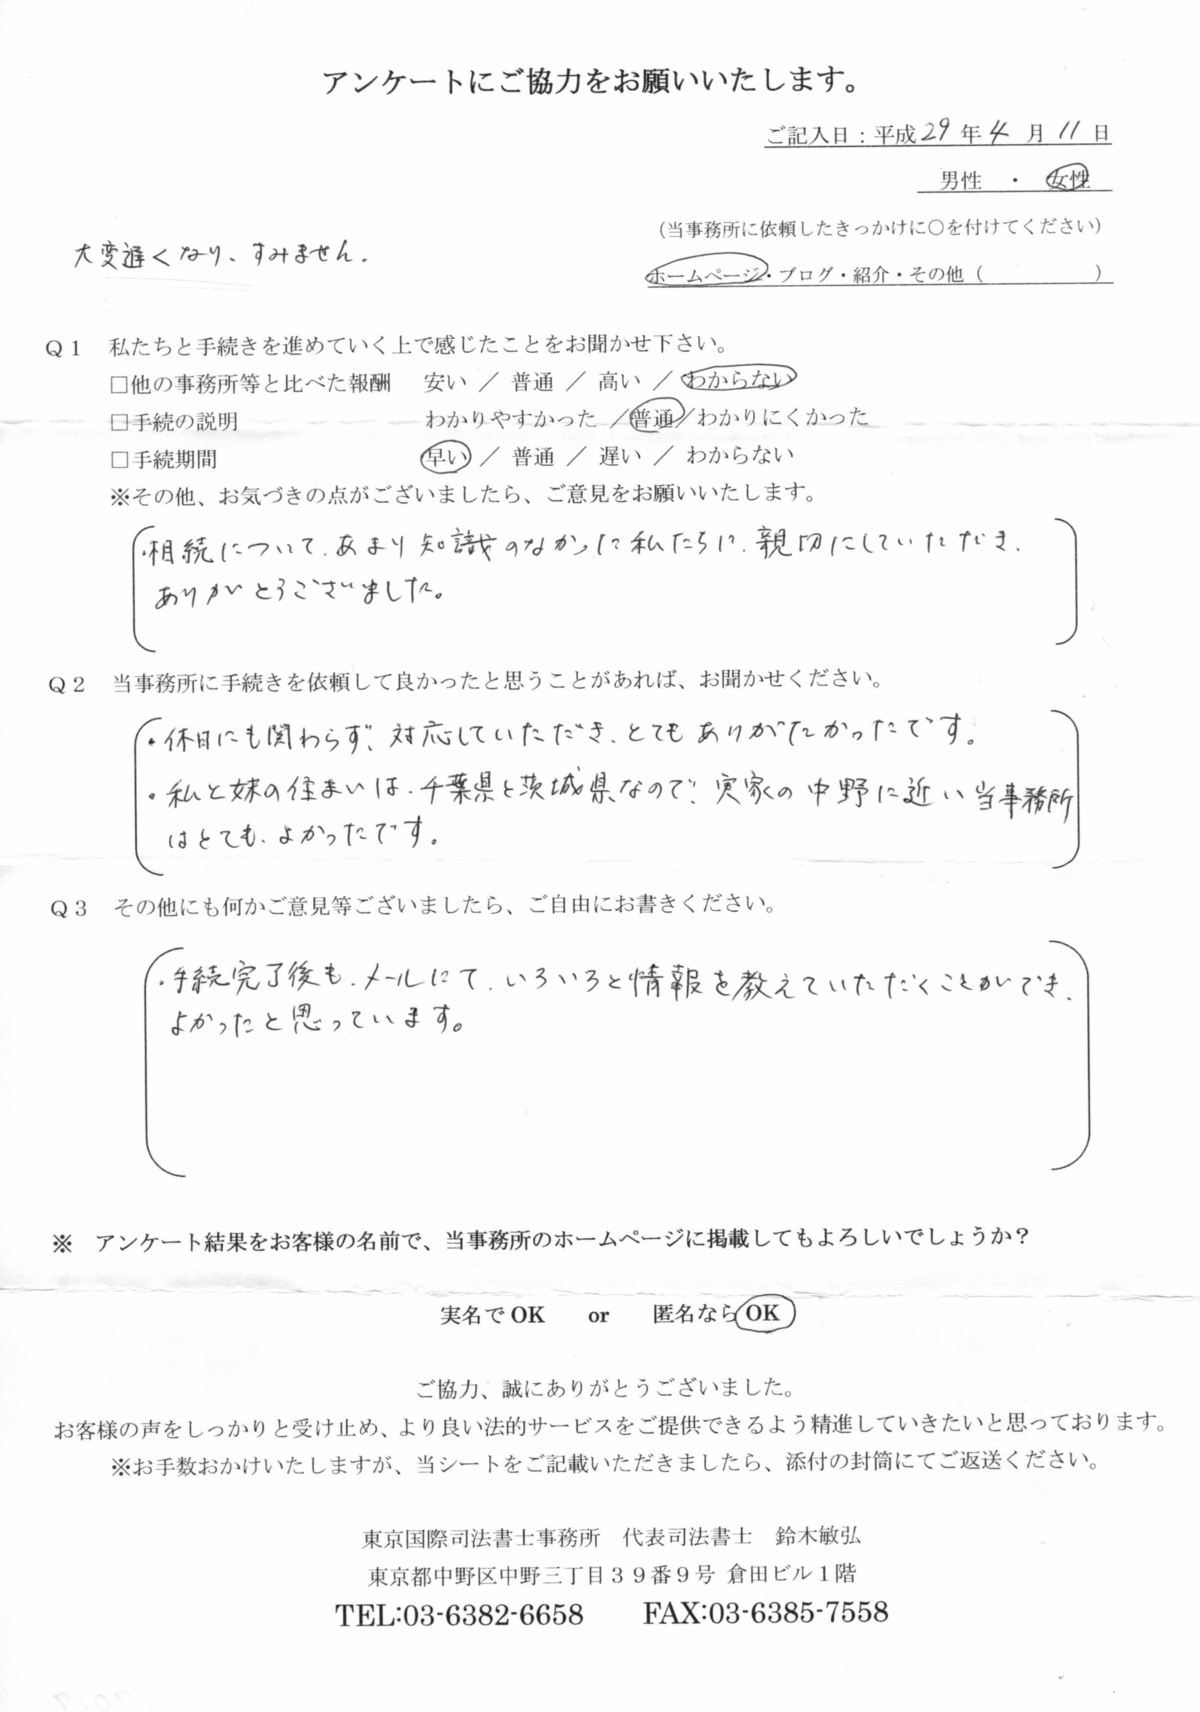 アンケートにご協力をお願いいたします。
ご記入日：平成29年4月11日
男性 ・ 女性
（当事務所に依頼したきっかけに○を付けてください）
大変遅くなり、すみません。
ホームページ・ブログ・紹介・その他（ ）
Q1 私たちと手続きを進めていく上で感じたことをお聞かせ下さい。
□他の事務所等と比べた報酬 安い ／ 普通 ／ 高い ／ わからない
□手続の説明 わかりやすかった ／普通／わかりにくかった
□手続期間 早い ／ 普通 ／ 遅い ／ わからない
※その他、お気づきの点がございましたら、ご意見をお願いいたします。
・相続について、あまり知識のなかった私たちに、親切にしていただき、
ありがとうございました。
Q2 当事務所に手続きを依頼して良かったと思うことがあれば、お聞かせください。
・休日にも関わらず、対応していただき、とてもありがたかったです。
・私と妹の住まいは、千葉県と茨城県なので、実家の中野に近い当事務所
はとても、よかったです。
Q3 その他にも何かご意見等ございましたら、ご自由にお書きください。
・手続完了後も、メールにて、いろいろと情報を教えていただくことができ、
よかったと思っています。
※ アンケート結果をお客様の名前で、当事務所のホームページに掲載してもよろしいでしょうか？
実名でOK or 匿名ならOK
ご協力、誠にありがとうございました。
お客様の声をしっかりと受け止め、より良い法的サービスをご提供できるよう精進していきたいと思っております。
※お手数おかけいたしますが、当シートをご記載いただきましたら、添付の封筒にてご返送ください。
東京国際司法書士事務所 代表司法書士 鈴木敏弘
東京都中野区中野三丁目39番9号 倉田ビル1階
TEL:03-6382-6658 FAX:03-6385-7558